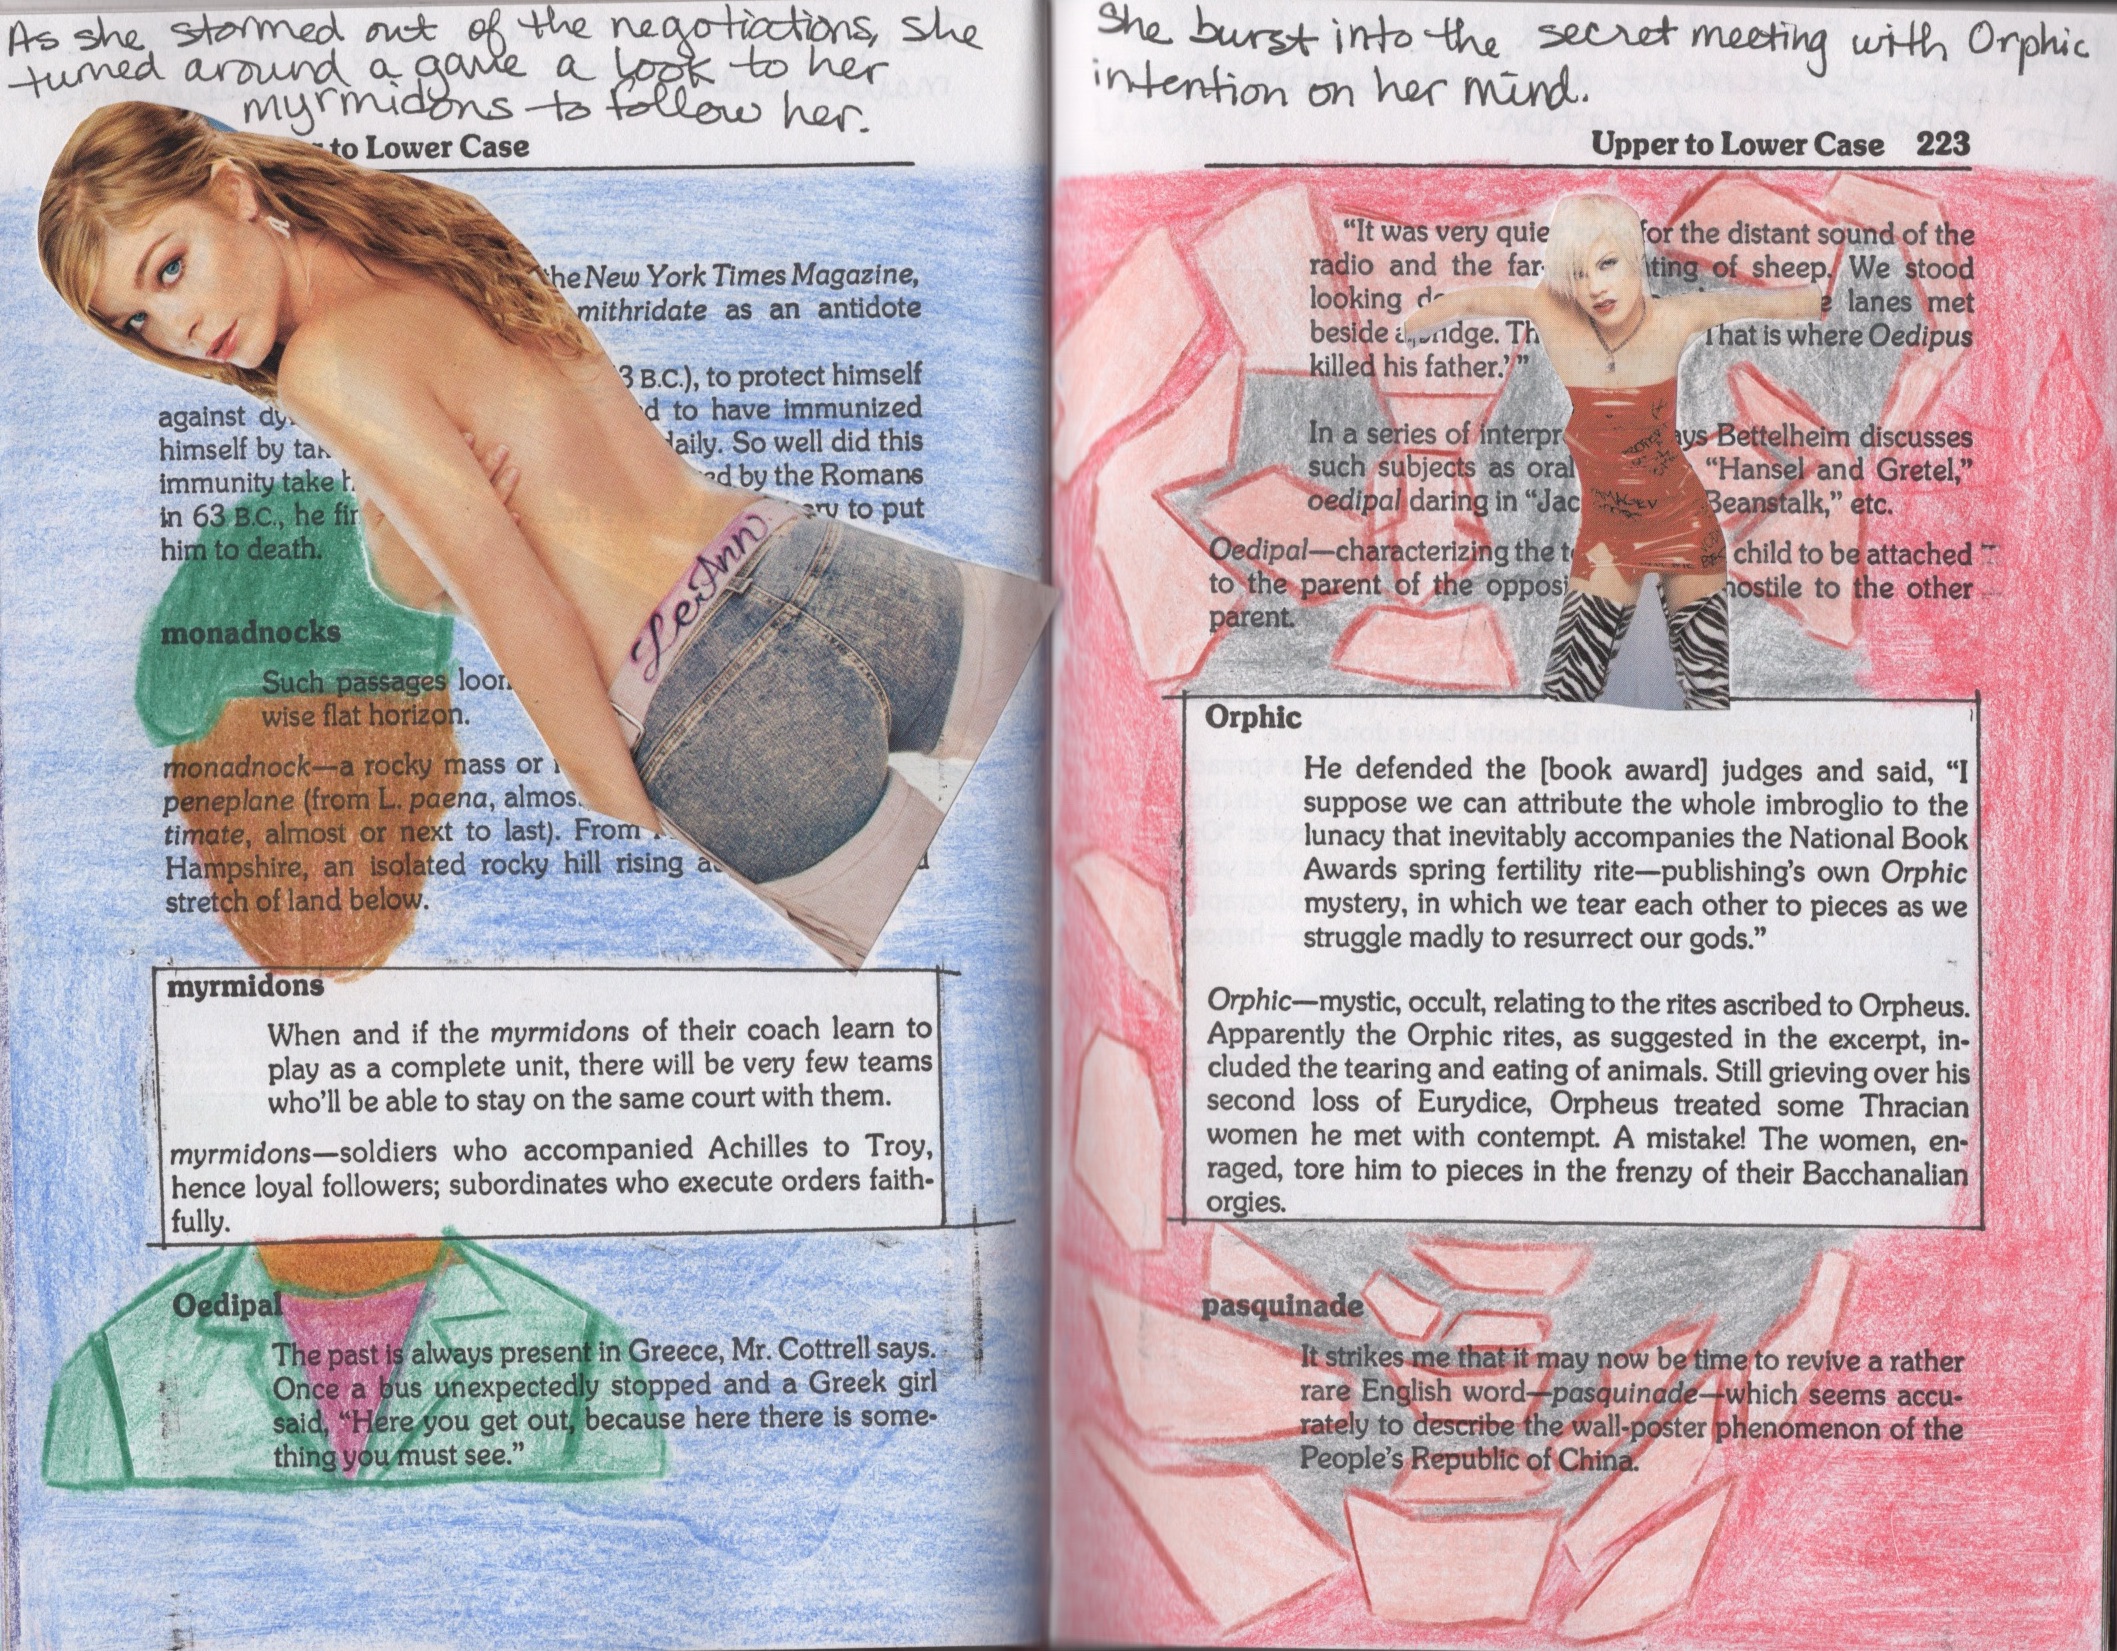 As she stormed out of the negotiations, she
turned around a gave a look to her
myrmidons to follow her.
to Lower Case
the New York Times Magazine,
mithridate as an antidote
3 B.C.), to protect himself
against to have immunized
himself by daily. So well did this
immunity take by the Romans
in 63 B.C., he to put
him to death.
LeAnn
monadnocks
Such passages
wise flat horizon.
monadnock—a rocky mass or
peneplane (from L. paena,
timate, almost or next to last). From
Hampshire, an isolated rocky hill rising
stretch of land below.
myrmidons
When and if the myrmidons of their coach learn to
play as a complete unit, there will be very few teams
who'll be able to stay on the same court with them.
myrmidons—soldiers who accompanied Achilles to Troy,
hence loyal followers; subordinates who execute orders faith-
fully.
Oedipal
The past is always present in Greece, Mr. Cottrell says.
Once a bus unexpectedly stopped and a Greek girl
said, “Here you get out, because here there is some-
thing you must see.”
She burst into the secret meeting with Orphic
intention on her mind.
Upper to Lower Case 223
“It was very for the distant sound of the
radio and the of sheep. We stood
looking lanes met
beside That is where Oedipus
killed his father.’”
In a series of Bettelheim discusses
such subjects as oral “Hansel and Gretel,”
oedipal daring in Beanstalk,” etc.
Oedipal—characterizing the child to be attached
to the parent of the hostile to the other
parent.
Orphic
He defended the [book award] judges and said, “I
suppose we can attribute the whole imbroglio to the
lunacy that inevitably accompanies the National Book
Awards spring fertility rite—publishing's own Orphic
mystery, in which we tear each other to pieces as we
struggle madly to resurrect our gods.”
Orphic—mystic, occult, relating to the rites ascribed to Orpheus.
Apparently the Orphic rites, as suggested in the excerpt, in-
cluded the tearing and eating of animals. Still grieving over his
second loss of Eurydice, Orpheus treated some Thracian
women he met with contempt. A mistake! The women, en-
raged, tore him to pieces in the frenzy of their Bacchanalian
orgies.
pasquinade
It strikes me that it may now be time to revive a rather
rare English word—pasquinade—which seems accu-
rately to describe the wall-poster phenomenon of the
People's Republic of China.